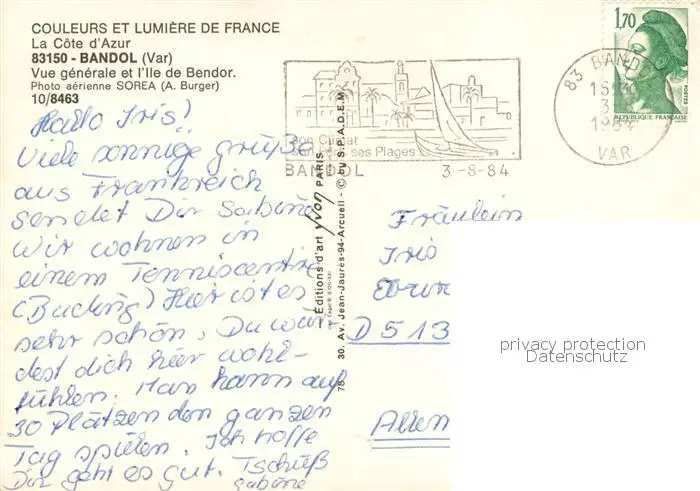 COULEURS ET LUMIÈRE DE FRANCE
La Côte d'Azur
83150 - BANDOL (Var)
Vue générale et l'Ile de Bendor.
Photo aérienne SOREA (A. Burger)
10/8463
Hallo Iris!
Viele sonnige Grüße
aus Frankreich
sendet Dir Sabine
Wir wohnen in
einem Tenniscentre
(Bucking) Hier ist es
sehr schön. Du wür
dest dich hier wohl-
fühlen. Man kann auf
30 Plätzen den ganzen
Tag spielen. Ich hoffe
Dir geht es gut. Tschüß
Sabine
Editions d'art yvon PARIS
30. Av. Jean-Jaurès-94-Arcueil - © by S.P.A.D.E.M.
78
Son Climat
ses Plages
BANDOL 3-8-84
83 BANDOL
VAR
1,70
POSTES
REPUBLIQUE FRANCAISE
Fräulein
Iris
D 513
Allen
privacy protection
Datenschutz